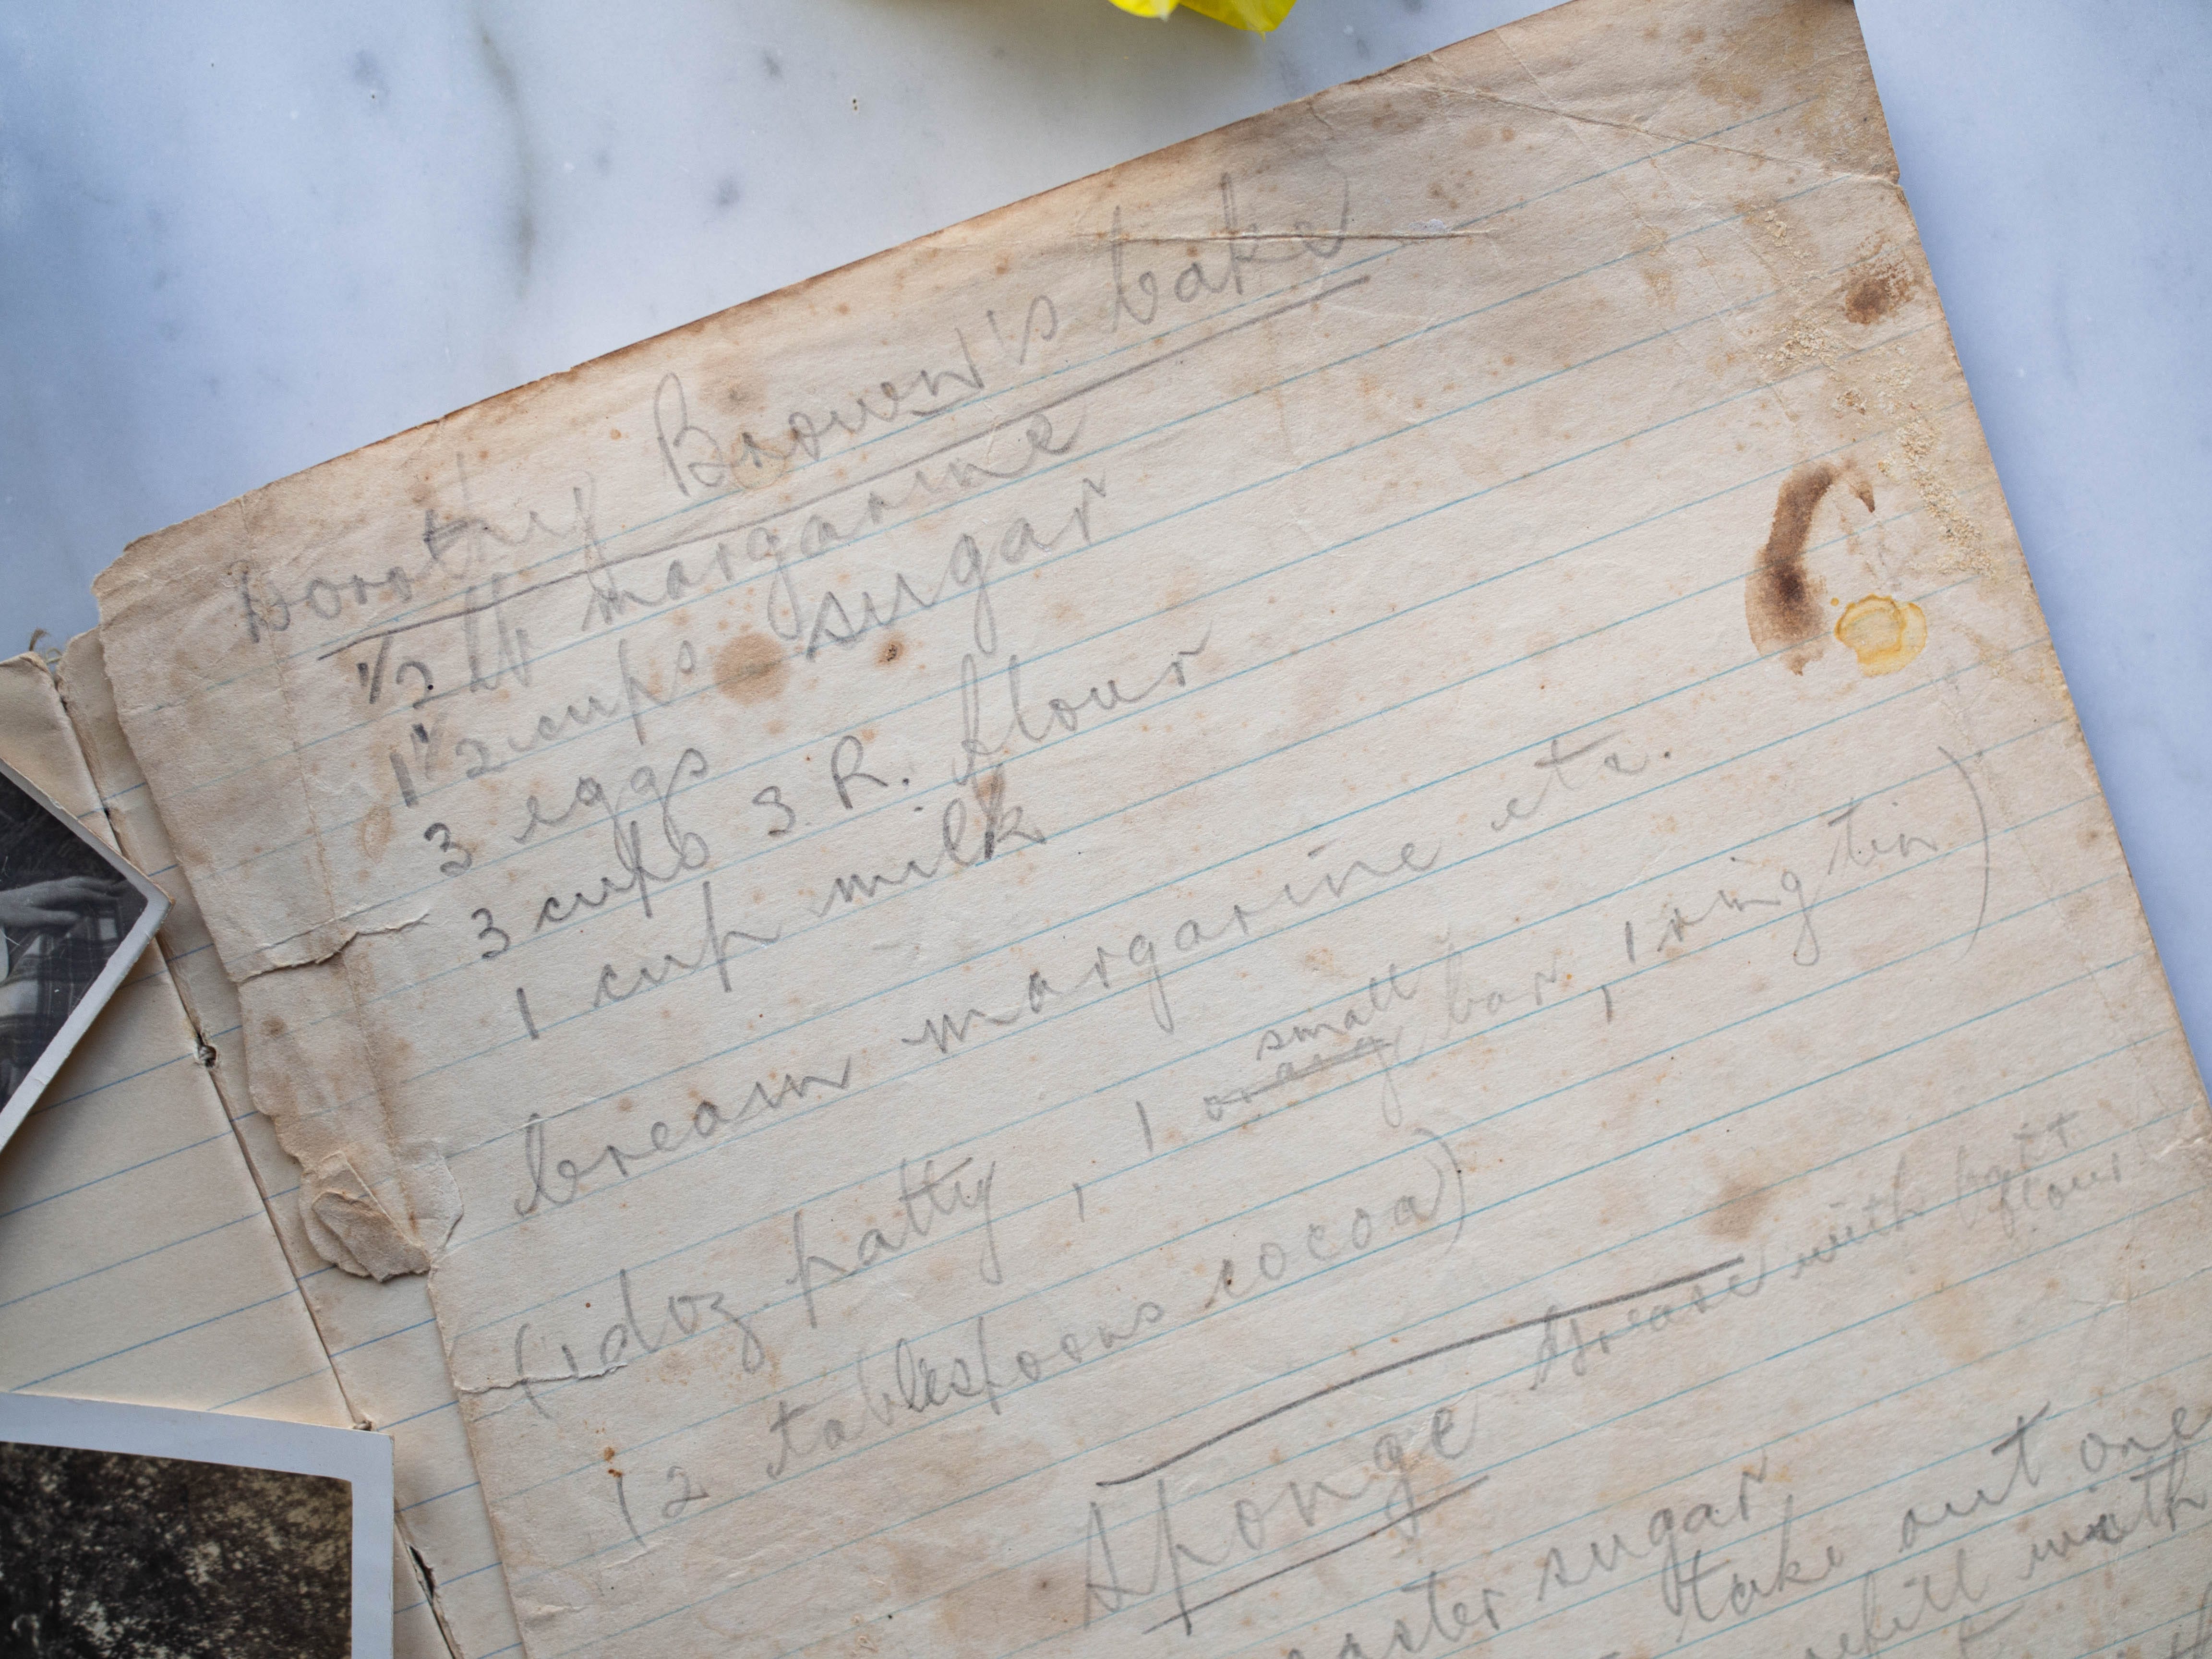 Dorothy Brown's Cake
1/2 lb margarine
1 1/2 cups sugar
3 eggs
3 cups S.R. flour
1 cup milk
Cream margarine etc.
(1 doz patty, 1 orang small bar, 1 ring tin)
(2 tablespoons cocoa)
Grease with butt + flour
Sponge
caster sugar
take out one
refill with